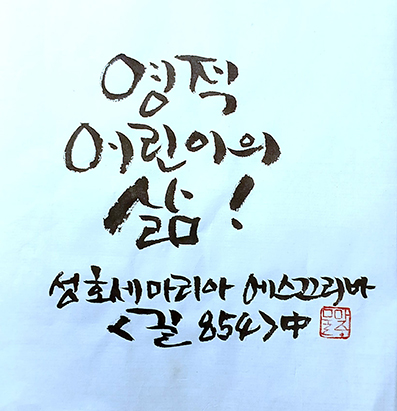 영적
어린이의
삶!
성호세마리아 에스끄리바
<길 854>中